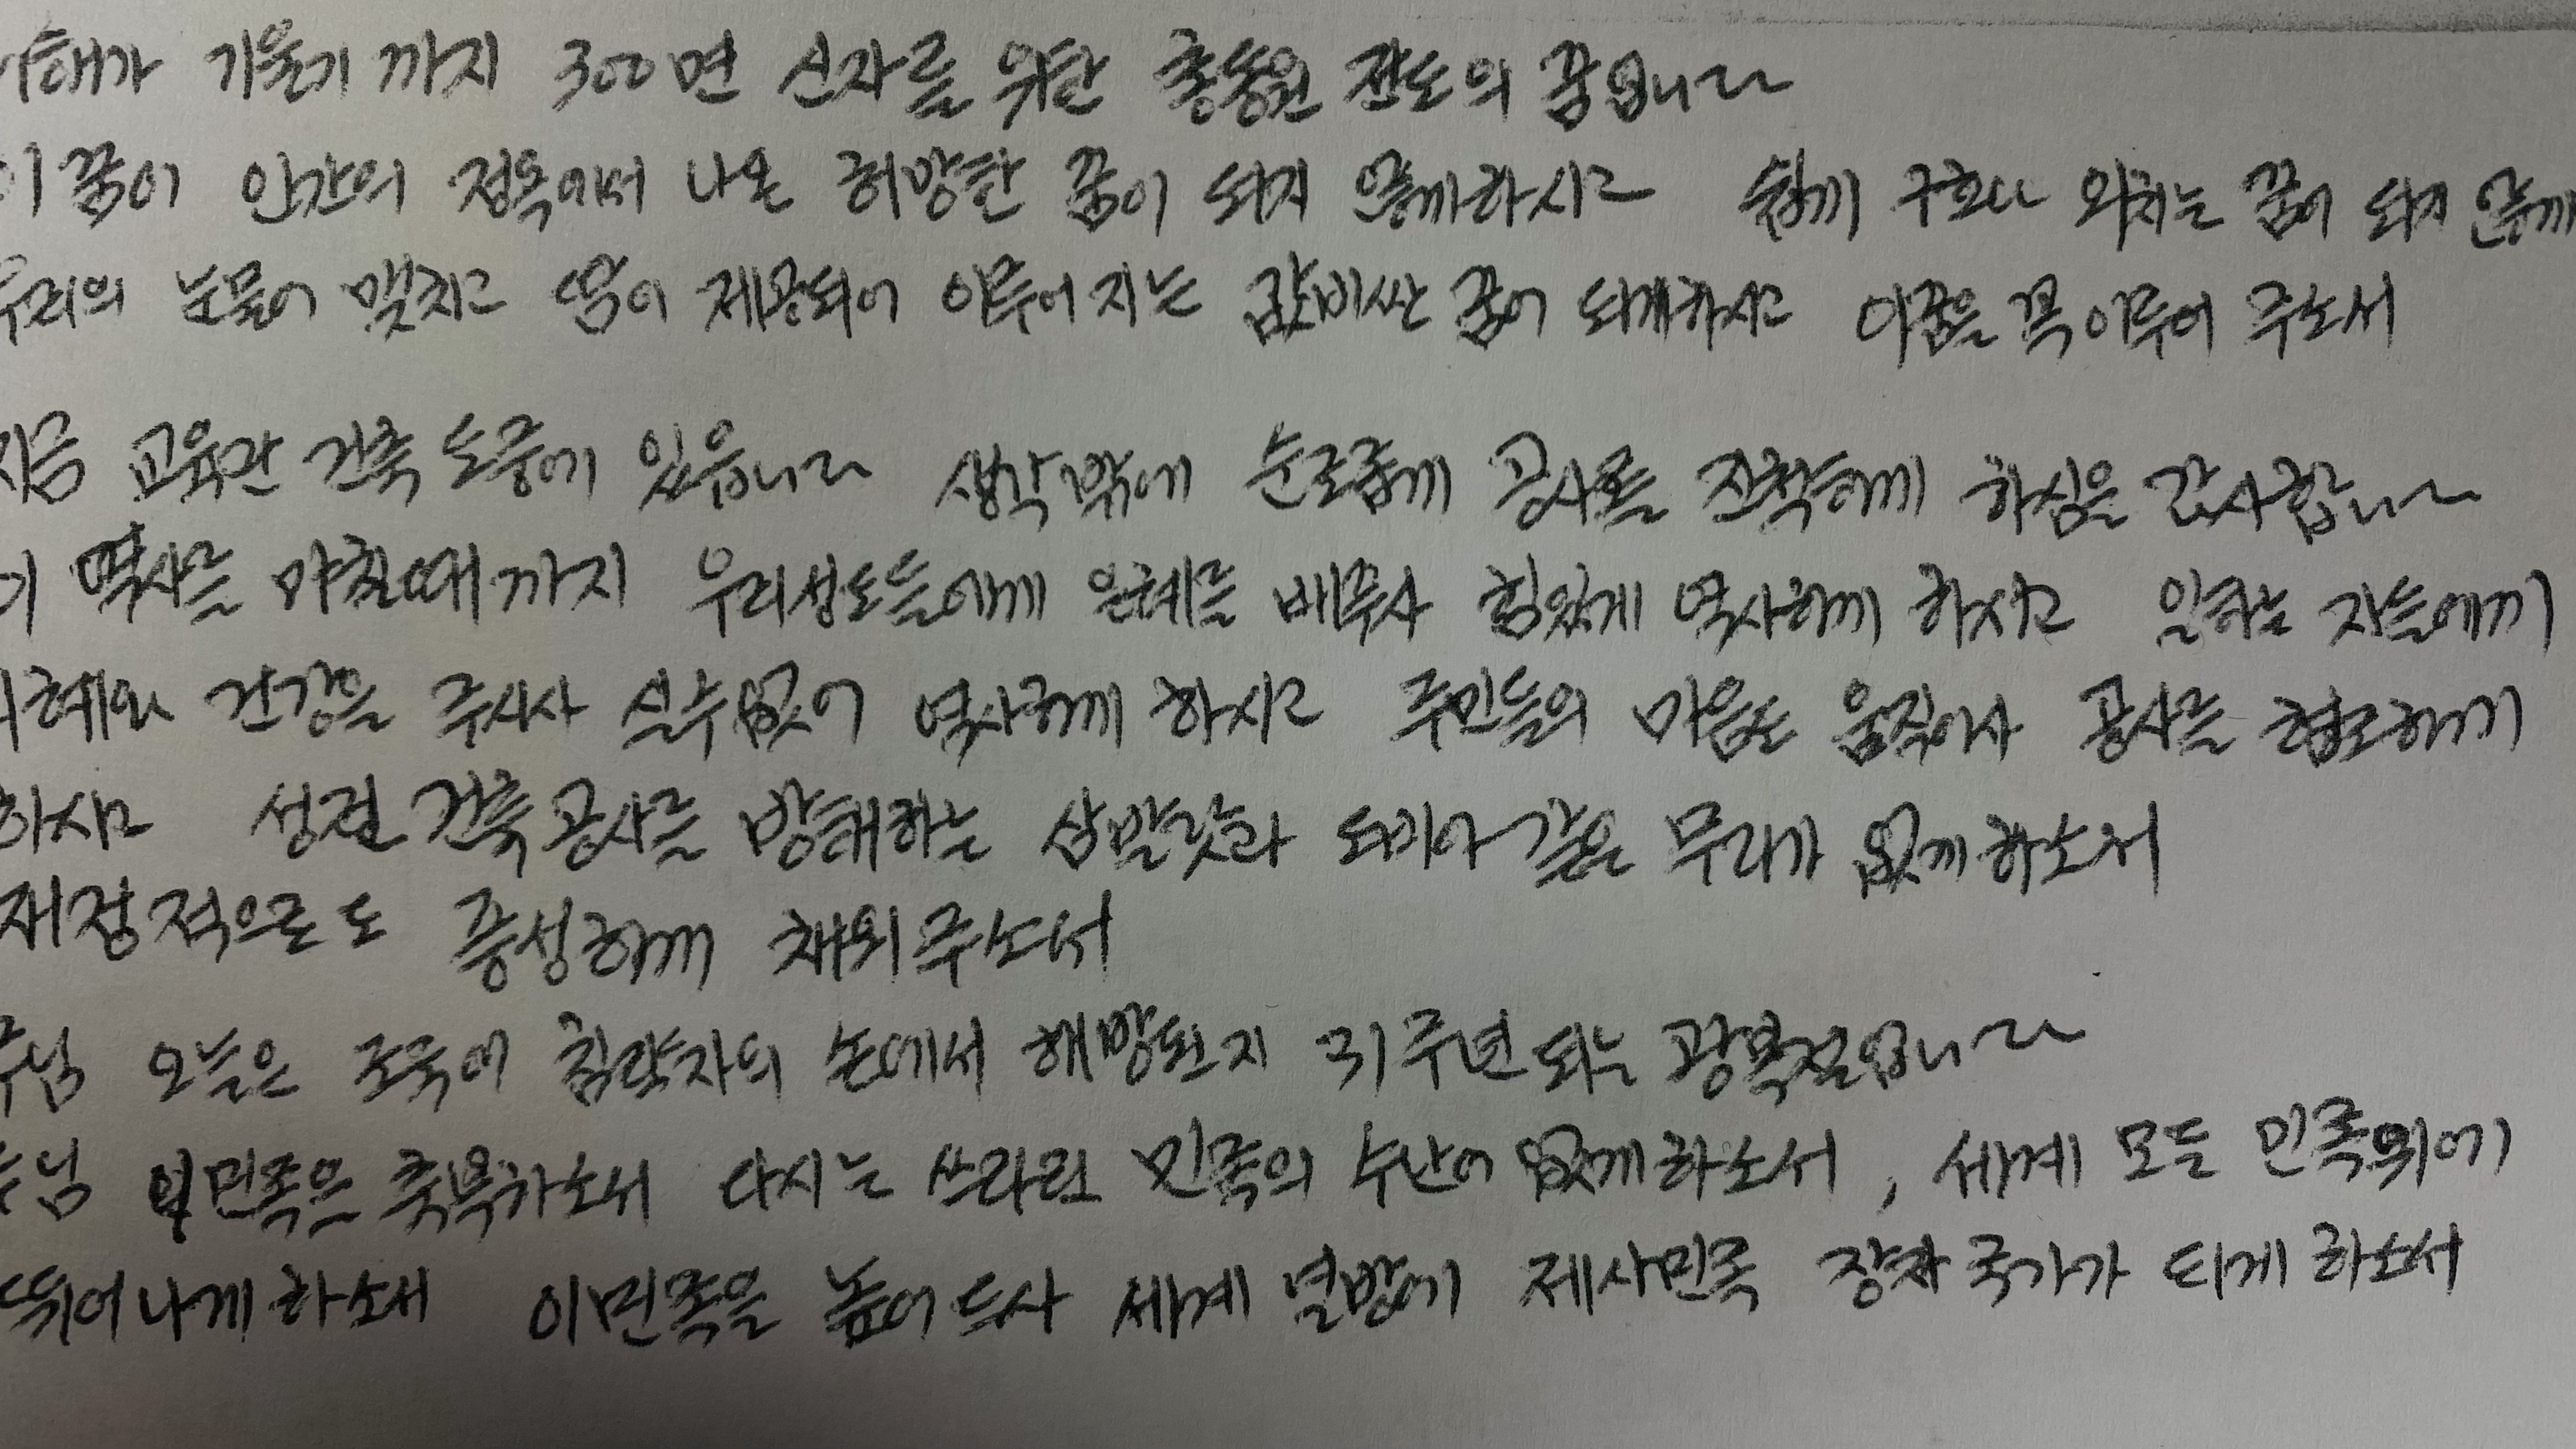 이해가 기울기 까지 300명 신자를 위한 총동원 전도의 꿈입니다
이 꿈이 인간의 정욕에서 나온 허망한 꿈이 되지 않게하시고 쉽게 구호나 외치는 꿈이 되지 않게
우리의 눈물이 맺치고 땀이 제공되어 이루어 지는 값비싼 꿈이 되게하시고 이꿈을 꼭 이루어 주소서
지금 교육관 건축 도중에 있읍니다 생각 밖에 순조롭게 공사를 진척하게 하심을 감사합니다
이 역사를 마칠때 까지 우리성도들에게 은혜를 베푸사 힘있게 역사하게 하시고 일하는 자들에게
지혜와 건강을 주시사 실수없이 역사하게 하시고 주민들의 마음도 움직이사 공사를 협조하게
하시고 성전 건축 공사를 방해하는 삼발랏과 도비야 같은 무리가 없게 하소서
재정적으로도 풍성하게 채워주소서
주님 오늘은 조국이 침략자의 손에서 해방된지 31주년 되는 광복절입니다
주님 이민족을 축복하소서 다시는 쓰라린 민족의 수난이 없게 하소서, 세계 모든 민족위에
뛰어나게 하소서 이민족을 높이 드사 세계 열방에 제사민족 장자 국가가 되게 하소서